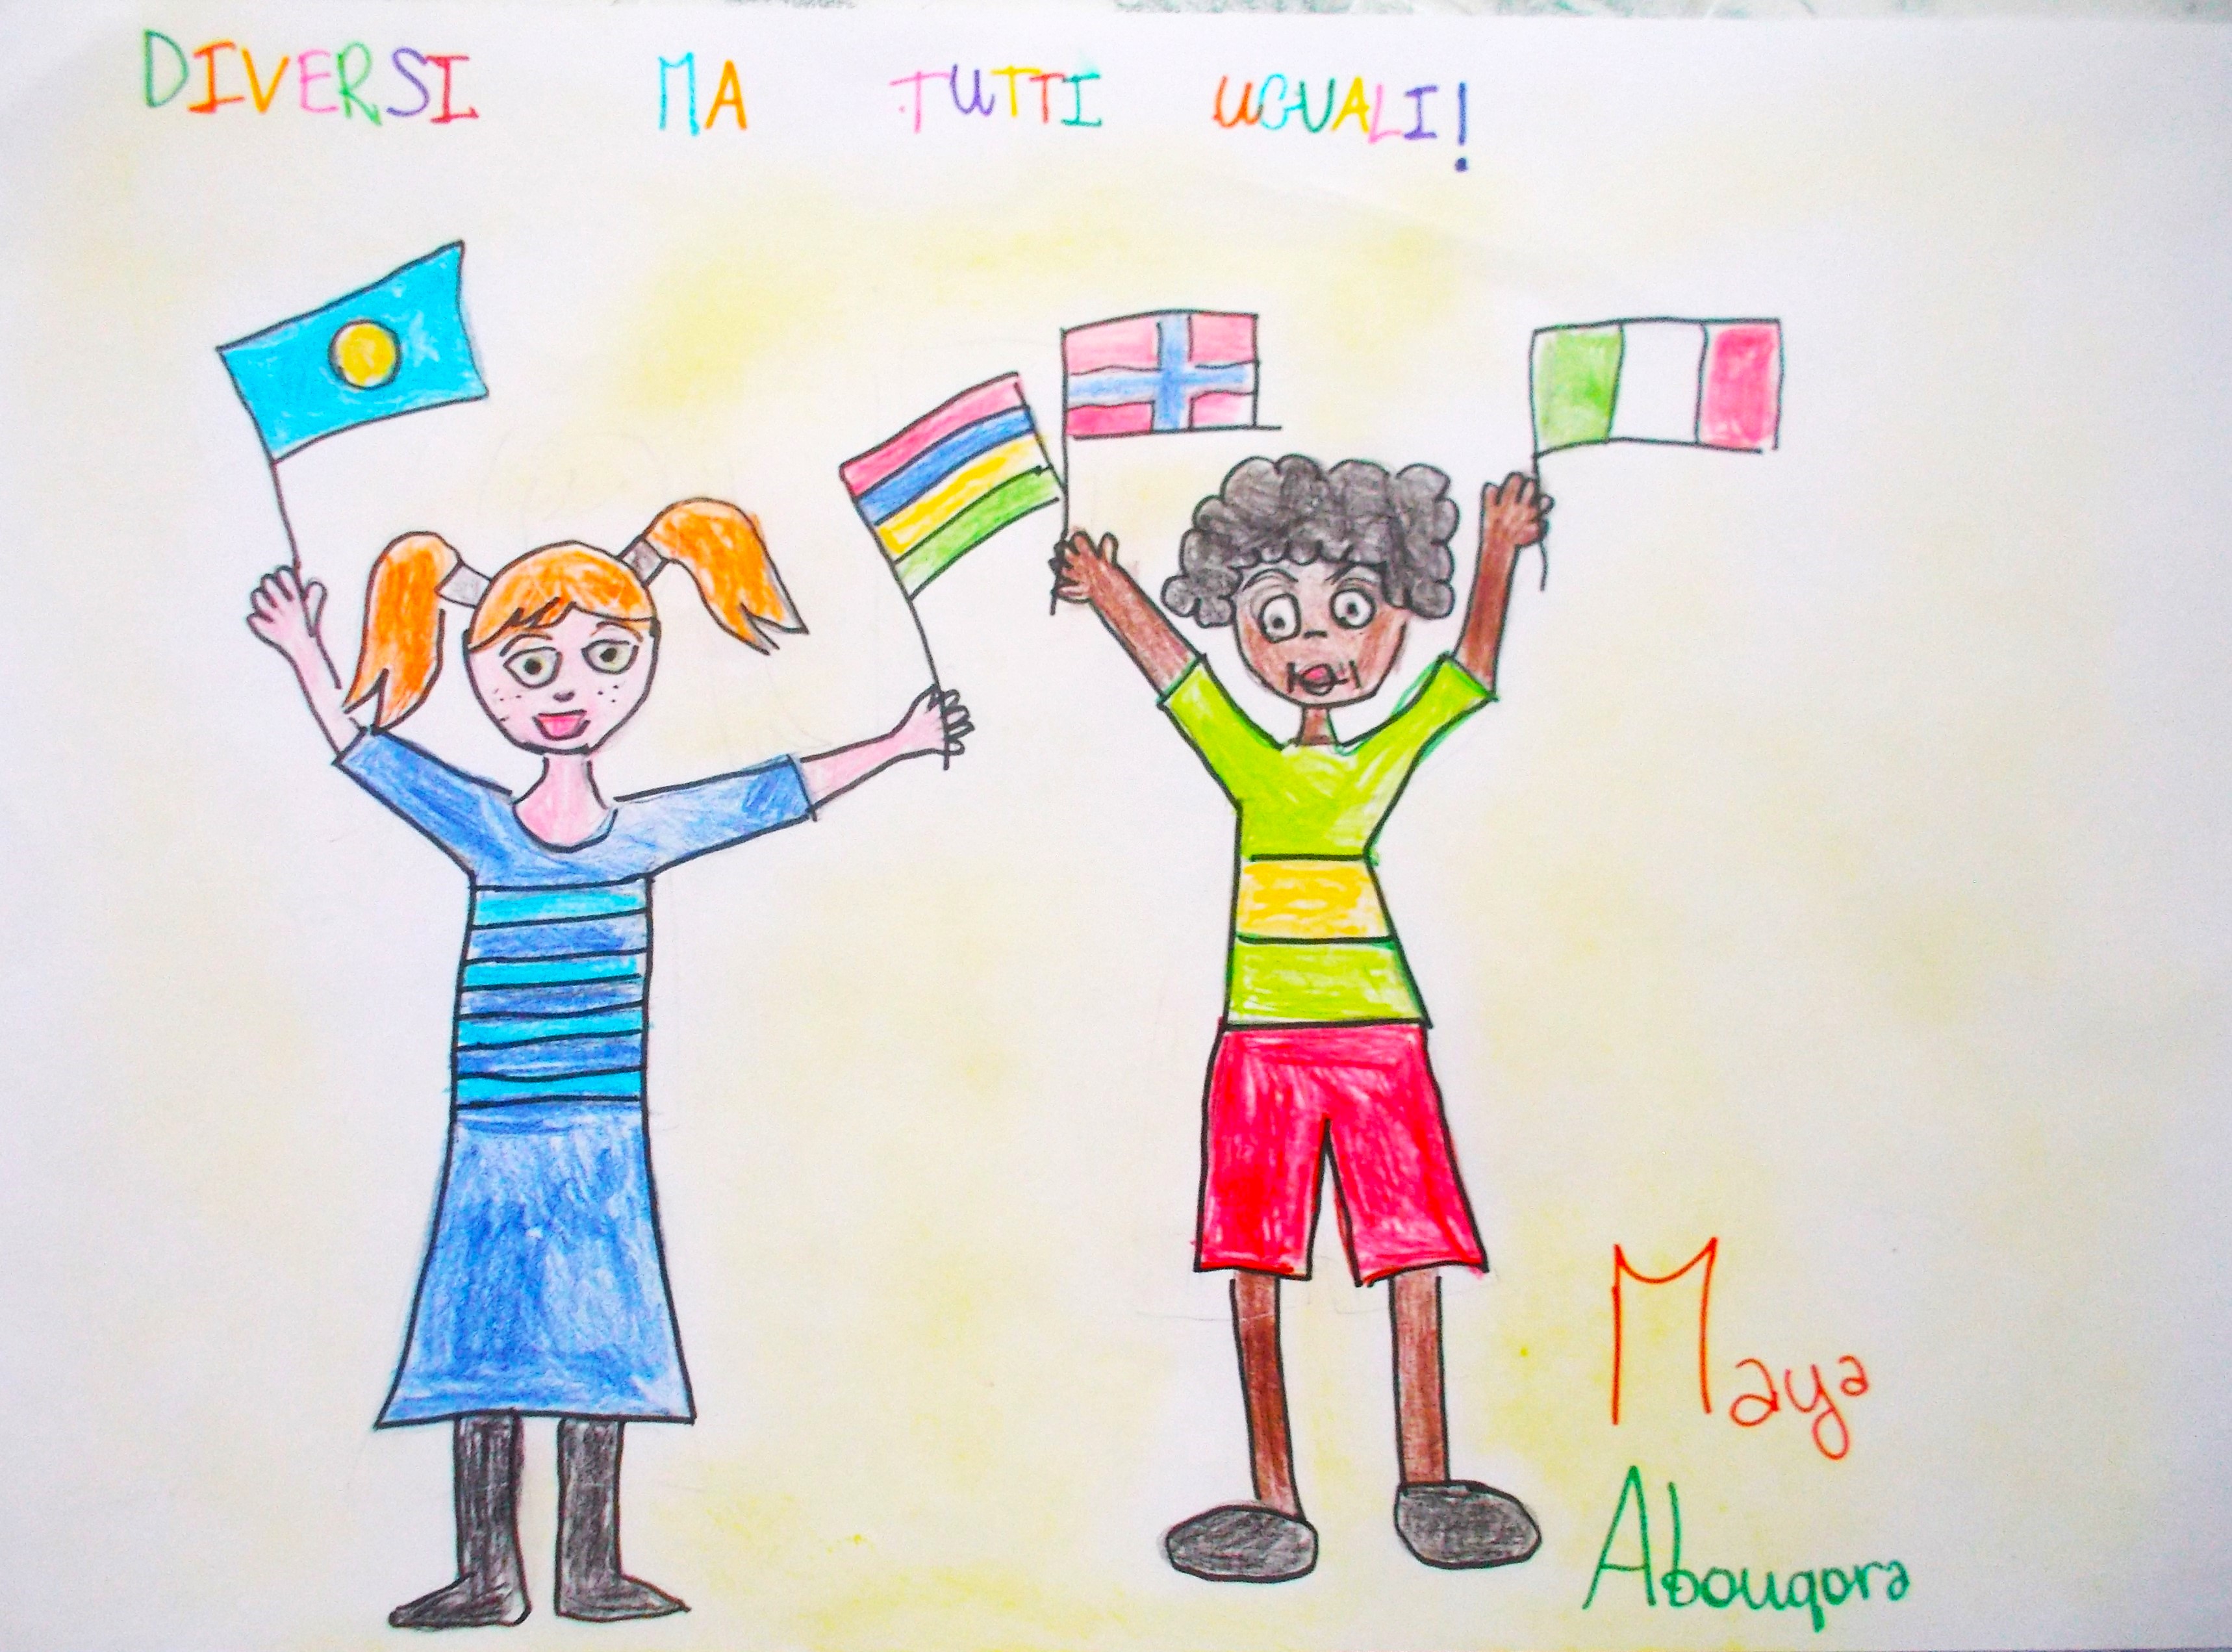 DIVERSI MA TUTTI UGUALI!
Maya
Abouqora